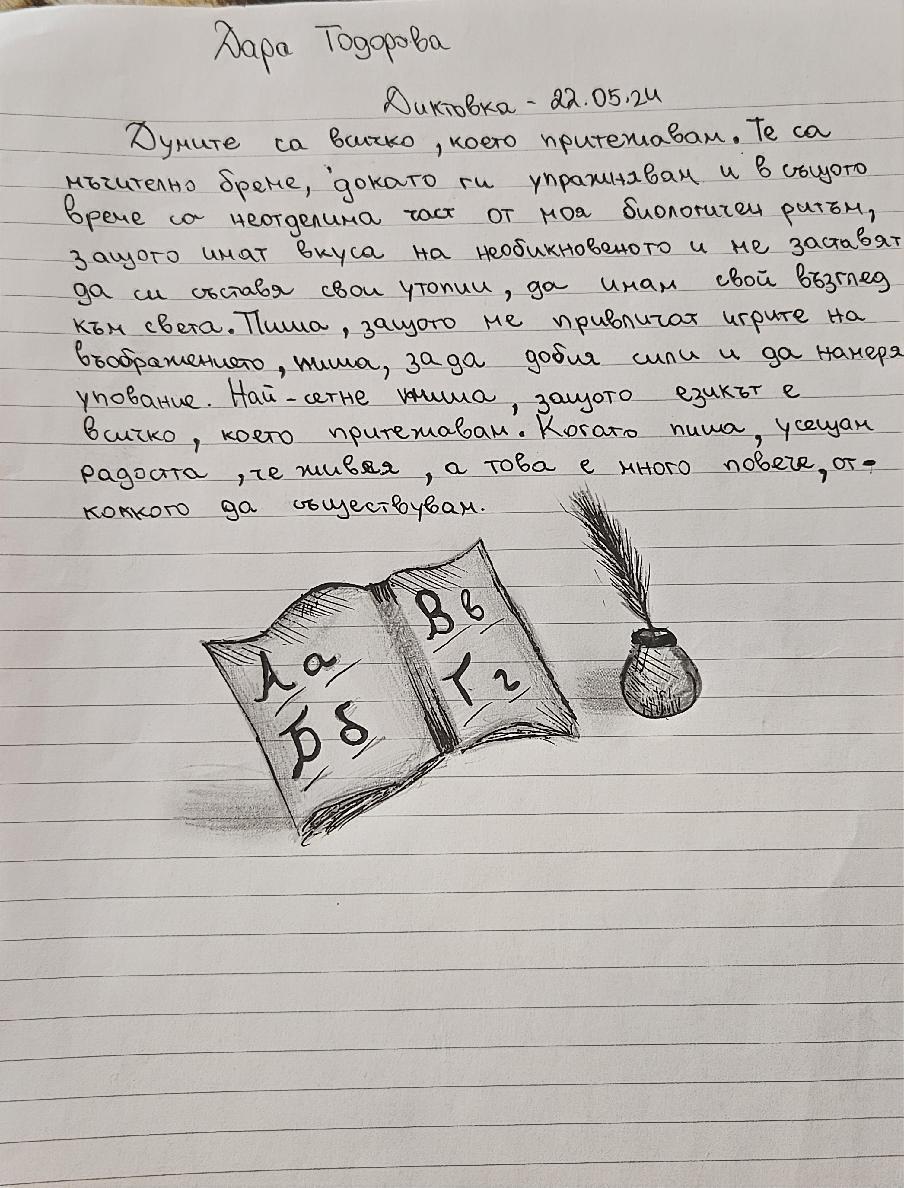 Дара Тодорова
Диктовка - 22.05.24
Думите са всичко, което притежавам. Те са
мъчително бреме, докато ги упражнявам и в същото
време са неотделима част от моя биологичен ритъм,
защото имат вкуса на необикновеното и ме заставят
да си съставя свои утопии, да имам свой възглед
към света. Пиша, защото ме привличат игрите на
въображението, пиша, за да добия сили и да намеря
упование. Най-сетне пиша, защото езикът е
всичко, което притежавам. Когато пиша, усещам
радостта, че живея, а това е много повече, от-
колкото да съществувам.
Аа
Бб
Вв
Гг